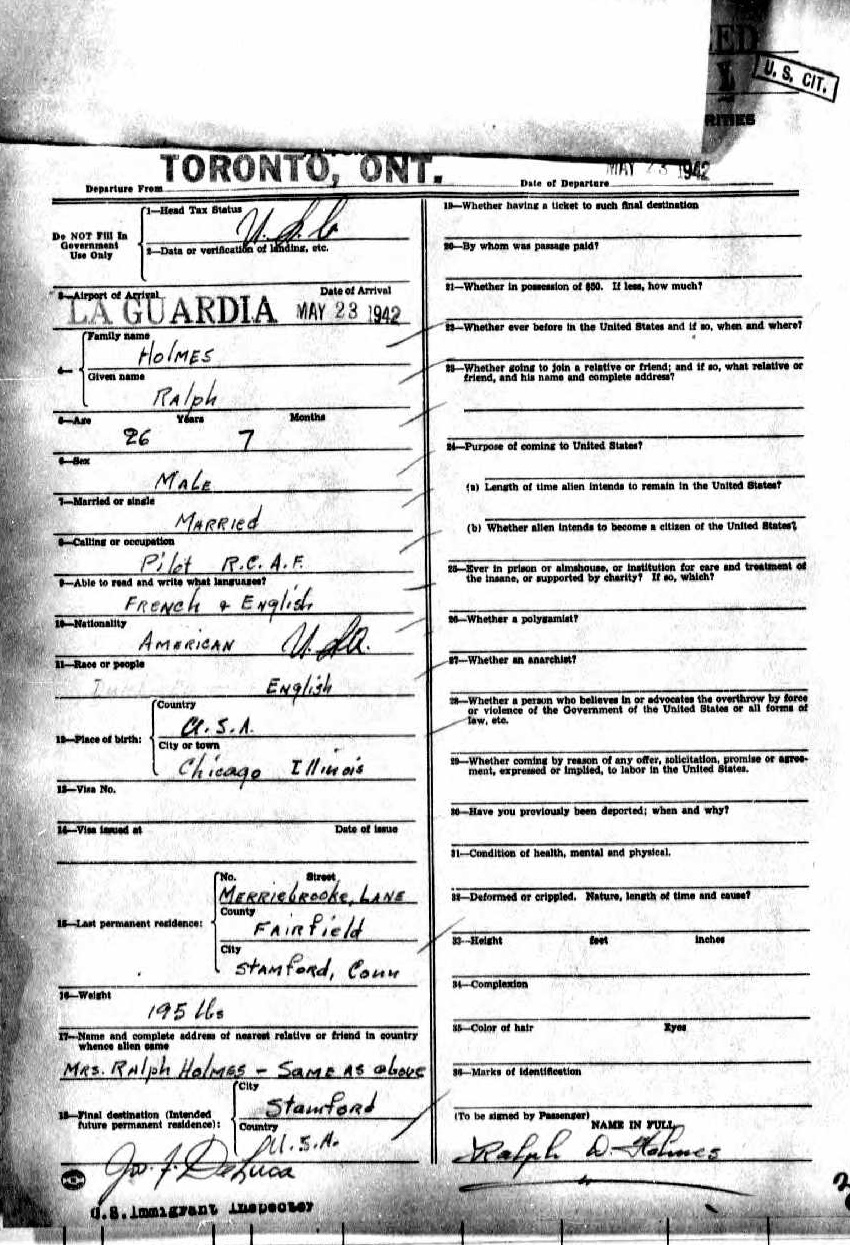 U. S. CIT.
RITIES
TORONTO, ONT.
MAY 23 1942
Departure From
Date of Departure
Do NOT Fill In
Government
Use Only
1—Head Tax Status
U. S. C
2—Data or verification of landing, etc.
3—Airport of Arrival
Date of Arrival
LA GUARDIA
MAY 23 1942
4—
Family name
HOLMES
Given name
RAlph
5—Age
Years
Months
26
7
6—Sex
MALE
7—Married or single
MARRIEd
8—Calling or occupation
Pilot R.C.A.F.
9—Able to read and write what languages?
FRENCH & ENGlISh
10—Nationality
AMERICAN
U.S.A.
11—Race or people
ENglish
12—Place of birth:
Country
U.S.A.
City or town
Chicago Illinois
13—Visa No.
14—Visa issued at
Date of issue
15—Last permanent residence:
No.
Street
MERRIEbROOKE, LANE
County
FAIRfield
City
STAMFORD, CONN
16—Weight
195 lbs
17—Name and complete address of nearest relative or friend in country
whence alien came
MRS. RAlph HOLMES – SAME AS above
18—Final destination (Intended
future permanent residence):
City
Stamford
Country
U.S.A.
Jos. J. DeLuca
U.S. Immigrant Inspector
19—Whether having a ticket to such final destination
20—By whom was passage paid?
21—Whether in possession of $50. If less, how much?
22—Whether ever before in the United States and if so, when and where?
23—Whether going to join a relative or friend; and if so, what relative or
friend, and his name and complete address?
24—Purpose of coming to United States?
(a) Length of time alien intends to remain in the United States?
(b) Whether alien intends to become a citizen of the United States?
25—Ever in prison or almshouse, or institution for care and treatment of
the insane, or supported by charity? If so, which?
26—Whether a polygamist?
27—Whether an anarchist?
28—Whether a person who believes in or advocates the overthrow by force
or violence of the Government of the United States or all forms of
law, etc.
29—Whether coming by reason of any offer, solicitation, promise or agree-
ment, expressed or implied, to labor in the United States.
30—Have you previously been deported; when and why?
31—Condition of health, mental and physical.
32—Deformed or crippled. Nature, length of time and cause?
33—Height
feet
inches
34—Complexion
35—Color of hair
Eyes
36—Marks of identification
(To be signed by Passenger)
NAME IN FULL
Ralph W. Holmes